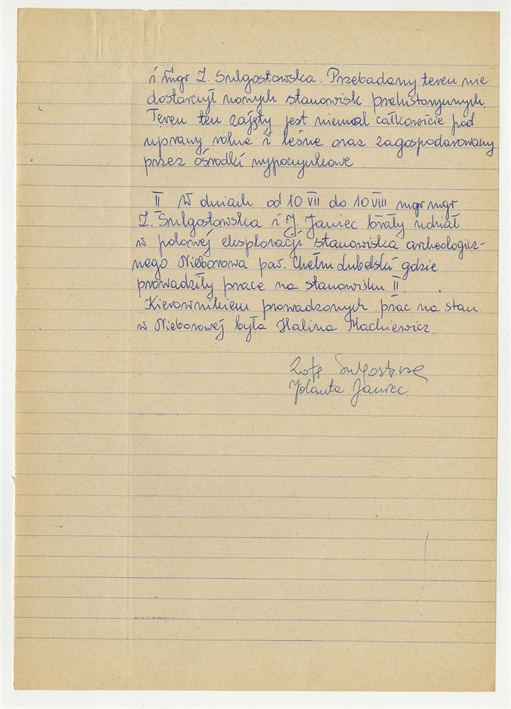 i mgr Z. Sulgostowska. Przebadany teren nie
dostarczył nowych stanowisk prahistorycznych.
Teren ten zajęty jest niemal całkowicie pod
uprawy rolne i leśne oraz zagospodarowany
przez ośrodki wypoczynkowe
II W dniach od 10 VII do 10 VIII mgr mgr
Z. Sulgostowska i J. Janiec brały udział
w polowej eksploracji stanowiska archeologicz-
nego Nieborowa pow. Chełm Lubelski gdzie
prowadziły prace na stanowisku II
Kierownikiem prowadzonych prac na stan.
w Nieborowej była Halina Mackiewicz.
Zofia Sulgostowska
Jolanta Janiec